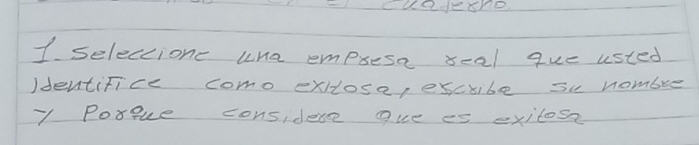 cuaderno
1. Seleccione una empresa real que usted
identifice como exitosa, escriba su nombre
y Porque considera que es exitosa